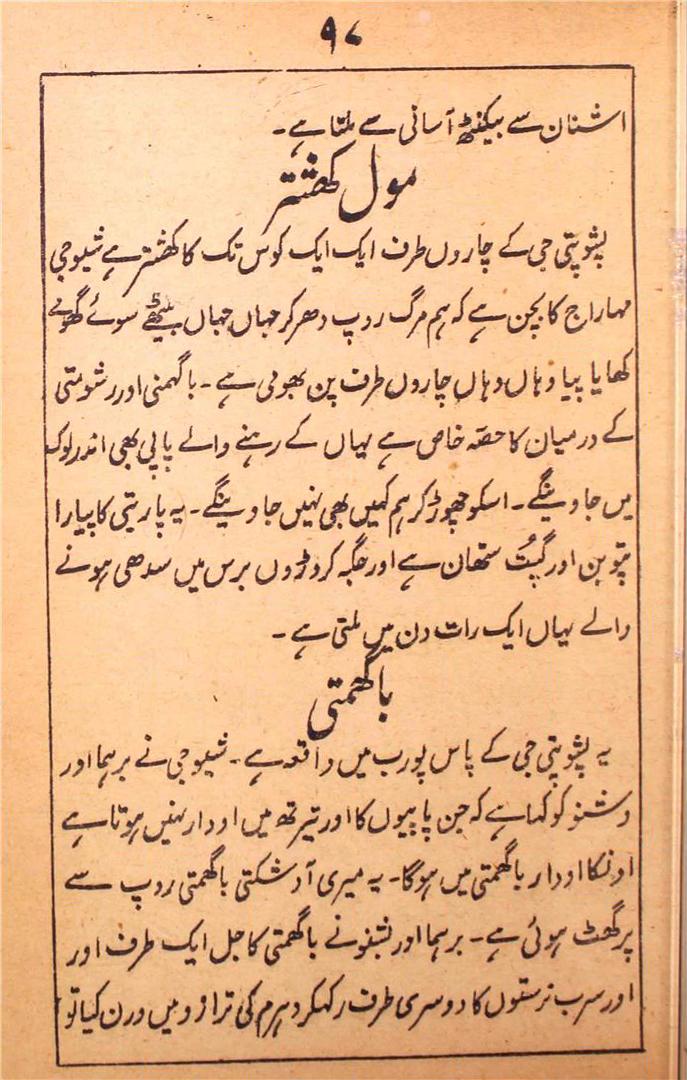 ۹۷
اشنان سے بیکنٹھ آسانی سے ملتا ہے۔
مول کھشتر
پشوپتی جی کے چاروں طرف ایک ایک کوس تک کا کھشتر ہے شیوجی
مہاراج کا بچن ہے کہ ہم مرگ روپ دھر کر جہاں جہاں بیٹھے سوئے گھومے
کھایا پیا وہاں وہاں چاروں طرف پن بھومی ہے۔ باگہمتی اور رشومتی
کے درمیان کا حصہ خاص ہے یہاں کے رہنے والے پاپی بھی اندر لوک
میں جاوینگے۔ اسکو چھوڑ کر ہم کہیں بھی نہیں جاوینگے۔ یہ پاربتی کا پیارا
تپوبن اور گپُت ستھان ہے اور جگہ کروڑوں برس میں سدھی ہونے
والے یہاں ایک رات دن میں ملتی ہے۔
باگھمتی
یہ پشوپتی جی کے پاس پورب میں واقعہ ہے۔ شیوجی نے برہما اور
وشنو کو کہا ہے کہ جن پاپیوں کا اور تیرتھ میں اودار نہیں ہوتا ہے
اونکا اودار باگھمتی میں ہوگا۔ یہ میری آد شکتی باگھمتی روپ سے
پرگھٹ ہوئی ہے۔ برہما اور بشنو نے باگھمتی کا جل ایک طرف اور
اور سرب ترستوں کا دوسری طرف رکھکر دہرم کی ترازو میں ورن کیا تو